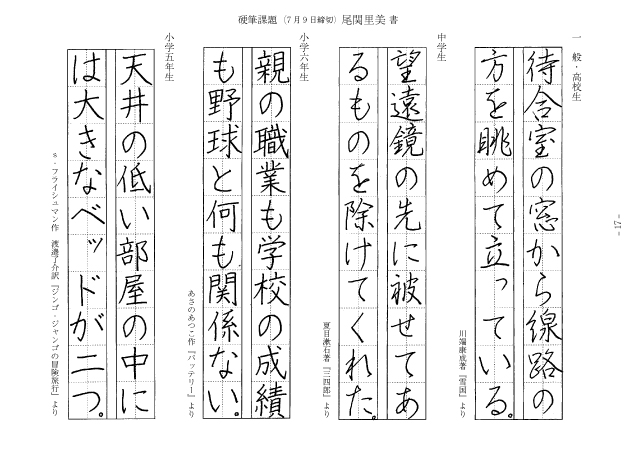 硬筆課題（７月９日締切）尾関里美 書
一般・高校生
待合室の窓から線路の
方を眺めて立っている。
川端康成著『雪国』より
中学生
望遠鏡の先に被せてあ
るものを除けてくれた。
夏目漱石著『三四郎』より
小学六年生
親の職業も学校の成績
も野球と何も関係ない。
あさのあつこ作『バッテリー』より
小学五年生
天井の低い部屋の中に
は大きなベッドが二つ。
s・フライシュマン作　渡邊了介訳『ジンゴ・ジャンゴの冒険旅行』より
- 17 -